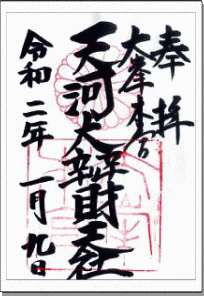 奉拝
大峯本宮
天河大辨財天社
令和二年 一月九日